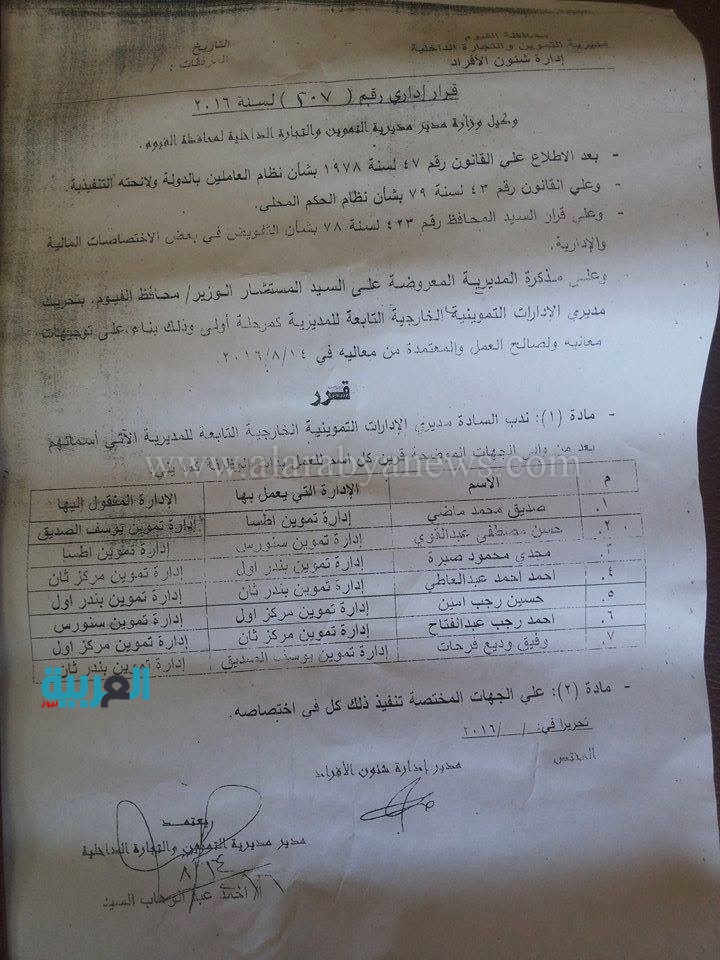 محافظة الفيوم
مديرية التموين والتجارة الداخلية
إدارة شئون الأفراد
التاريخ
المرفقات : /
قرار إداري رقم ( ٢٠٧ ) لسنة ٢٠١٦
وكيل وزارة مدير مديرية التموين والتجارة الداخلية لمحافظة الفيوم.
- بعد الاطلاع علي القانون رقم ٤٧ لسنة ١٩٧٨ بشأن نظام العاملين بالدولة ولائحته التنفيذية.
- وعلي القانون رقم ٤٣ لسنة ٧٩ بشأن نظام الحكم المحلي.
- وعلي قرار السيد المحافظ رقم ٤٢٣ لسنة ٧٨ بشأن التفويض في بعض الاختصاصات المالية
والإدارية.
وعلي مذكرة المديرية المعروضة علي السيد المستشار الوزير/ محافظ الفيوم. بتحريك
مديري الإدارات التموينية الخارجية التابعة للمديرية كمرحلة أولى وذلك بناء علي توجيهات
معاليه ولصالح العمل والمعتمدة من معاليه في ٢٠١٦/٨/١٤.
قرر
- مادة (١): ندب السادة مديري الإدارات التموينية الخارجية التابعة للمديرية الآتي أسمائهم
بعد من والي الجهات الموضحة قرين كل اسم للعمل بذات الوظيفة كما يلي:
www.alarabyanews.com
م الاسم الإدارة التي يعمل بها الإدارة المنقول إليها
١. صديق محمد ماضي إدارة تموين اطسا إدارة تموين يوسف الصديق
٢. حسن مصطفي عبدالقوي إدارة تموين سنورس إدارة تموين اطسا
٣. مجدي محمود صبرة إدارة تموين بندر اول إدارة تموين مركز ثان
٤. احمد احمد عبدالعاطي إدارة تموين بندر ثان إدارة تموين بندر اول
٥. حسين رجب امين إدارة تموين مركز اول إدارة تموين سنورس
٦. احمد رجب عبدالفتاح إدارة تموين مركز ثان إدارة تموين مركز اول
٧. وفيق وديع فرحات إدارة تموين يوسف الصديق إدارة تموين بندر ثان
العربية
نيوز
- مادة (٢): علي الجهات المختصة تنفيذ ذلك كل في اختصاصه.
تحريرا في: / /٢٠١٦
المختص
مدير إدارة شئون الأفراد
يعتمد
مدير مديرية التموين والتجارة الداخلية
٨/١٤
أحمد عبد الوهاب السيد